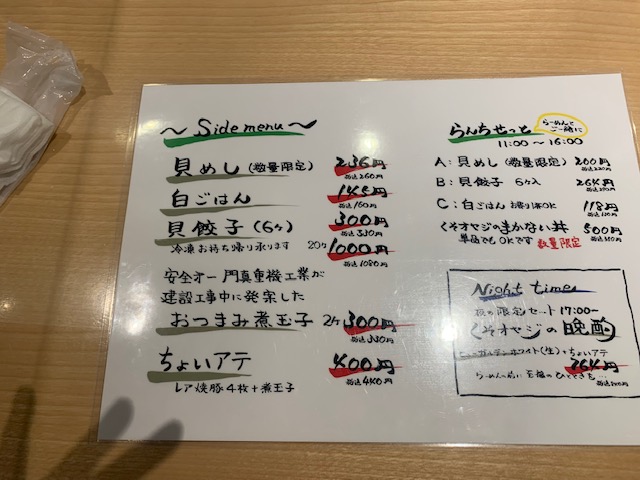 〜 Side menu 〜
貝めし(数量限定) 236円
税込260円
白ごはん
税込160円
貝餃子(6ヶ) 300円
税込330円
冷凍お持ち帰り承ります 20ヶ 1000円
税込1080円
安全オー 門真重機工業が
建設工事中に発案した
おつまみ煮玉子 2ヶ 300円
税込330円
ちょいアテ 400円
税込440円
レア焼豚4枚+煮玉子
らんちせっと
らーめんと
ご一緒に
11:00 〜 16:00
A:貝めし(数量限定) 200円
税込220円
B:貝餃子 6ヶ入 264円
C:白ごはん お替りOK 118円
くそオヤジのまかない丼 500円
単品でもOKです 数量限定
Night time
夜の限定セット 17:00-
くそオヤジの晩酌
(生)+ちょいアテ
764円
らーめんの前に 至福のひとときを…